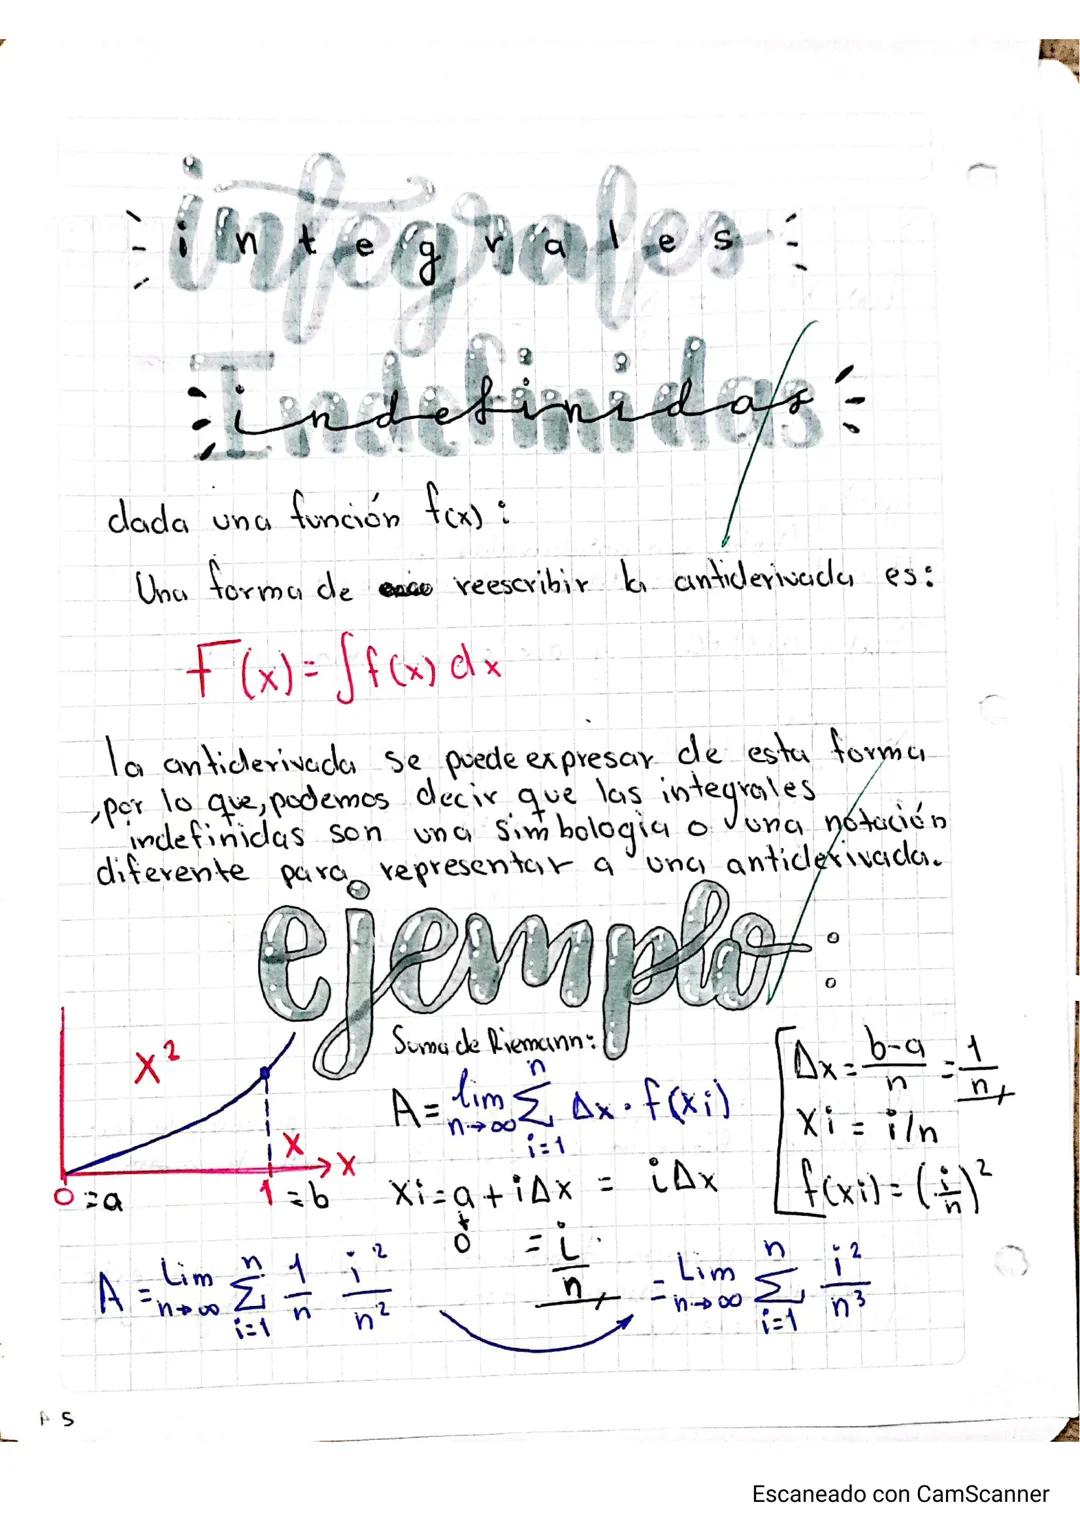 integrales
Indefinidas
dada una función f(x):
Una forma de reescribir la antiderivada es:
F(x)= ∫f(x) dx
la antiderivada se puede expresar de esta forma
,por lo que, podemos decir que las integrales
indefinidas son una simbología o una notación
diferente para representar a una antiderivada.
ejemplo:
x²
x
x
0=a
1=b
Suma de Riemann:
A= lim n→∞ n Σ i=1 Δx·f(xi)
xi=a+iΔx = iΔx
0
= i/n
Δx= b-a/n = 1/n
Xi = i/n
f(xi)=(i/n)²
A = Lim n→∞ n Σ i=1 1/n i²/n²
= Lim n→∞ n Σ i=1 i²/n³
5
Escaneado con CamScanner